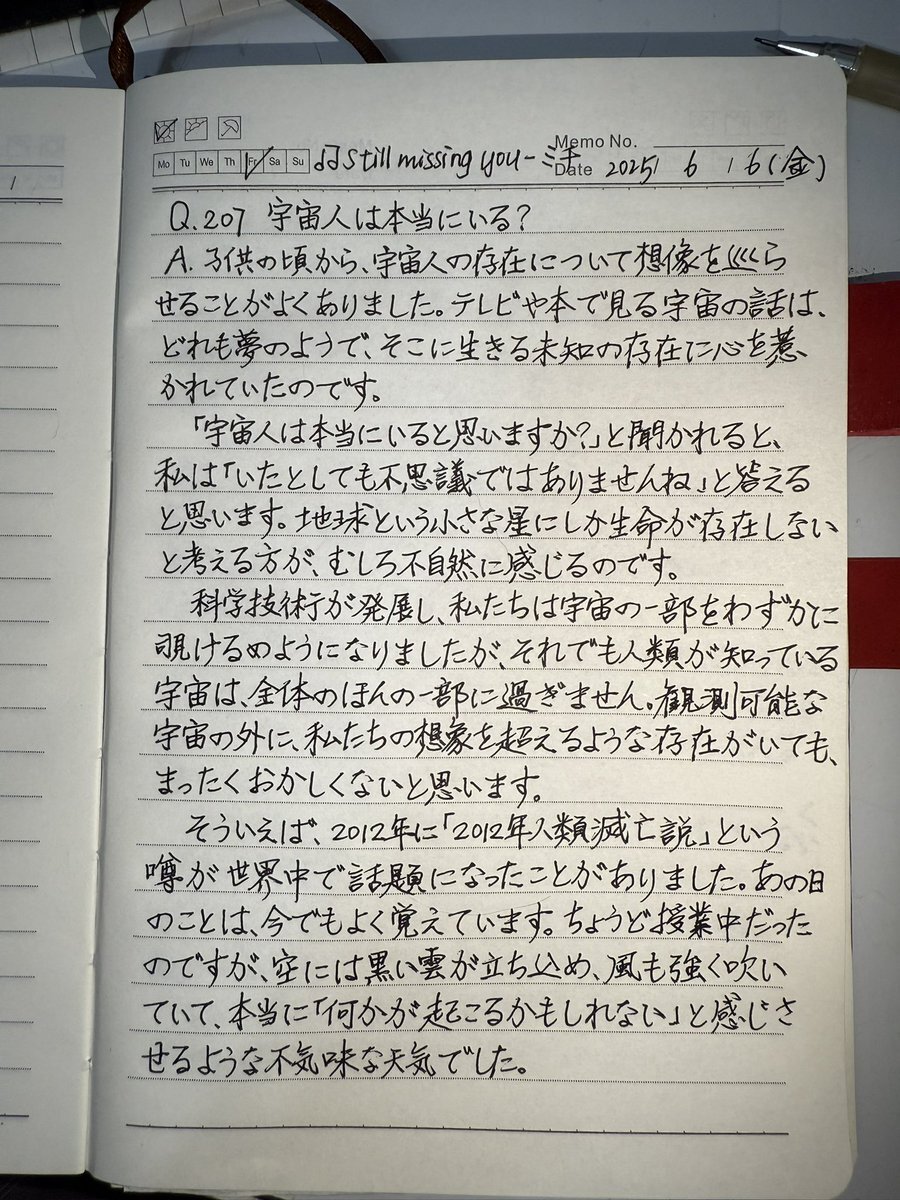 Memo No.
Mo Tu We Th Fr Sa Su
Still missing you-
Date 2025 / 6 / 6 (金)
Q.207 宇宙人は本当にいる?
A. 子供の頃から、宇宙人の存在について想像を巡ら
せることがよくありました。テレビや本で見る宇宙の話は、
どれも夢のようで、そこに生きる未知の存在に心を惹
かれていたのです。
「宇宙人は本当にいると思いますか?」と聞かれると、
私は「いたとしても不思議ではありませんね」と答える
と思います。地球という小さな星にしか生命が存在しない
と考える方が、むしろ不自然に感じるのです。
科学技術が発展し、私たちは宇宙の一部をわずかに
覗けるめようになりましたが、それでも人類が知っている
宇宙は、全体のほんの一部に過ぎません。観測可能な
宇宙の外に、私たちの想象を超えるような存在がいても、
まったくおかしくないと思います。
そういえば、2012年に「2012年人類滅亡説」という
噂が世界中で話題になったことがありました。あの日
のことは、今でもよく覚えています。ちょうど授業中だった
のですが、空には黒い雲が立ち込め、風も強く吹い
ていて、本当に「何かが起こるかもしれない」と感じさ
せるような不気味な天気でした。
1